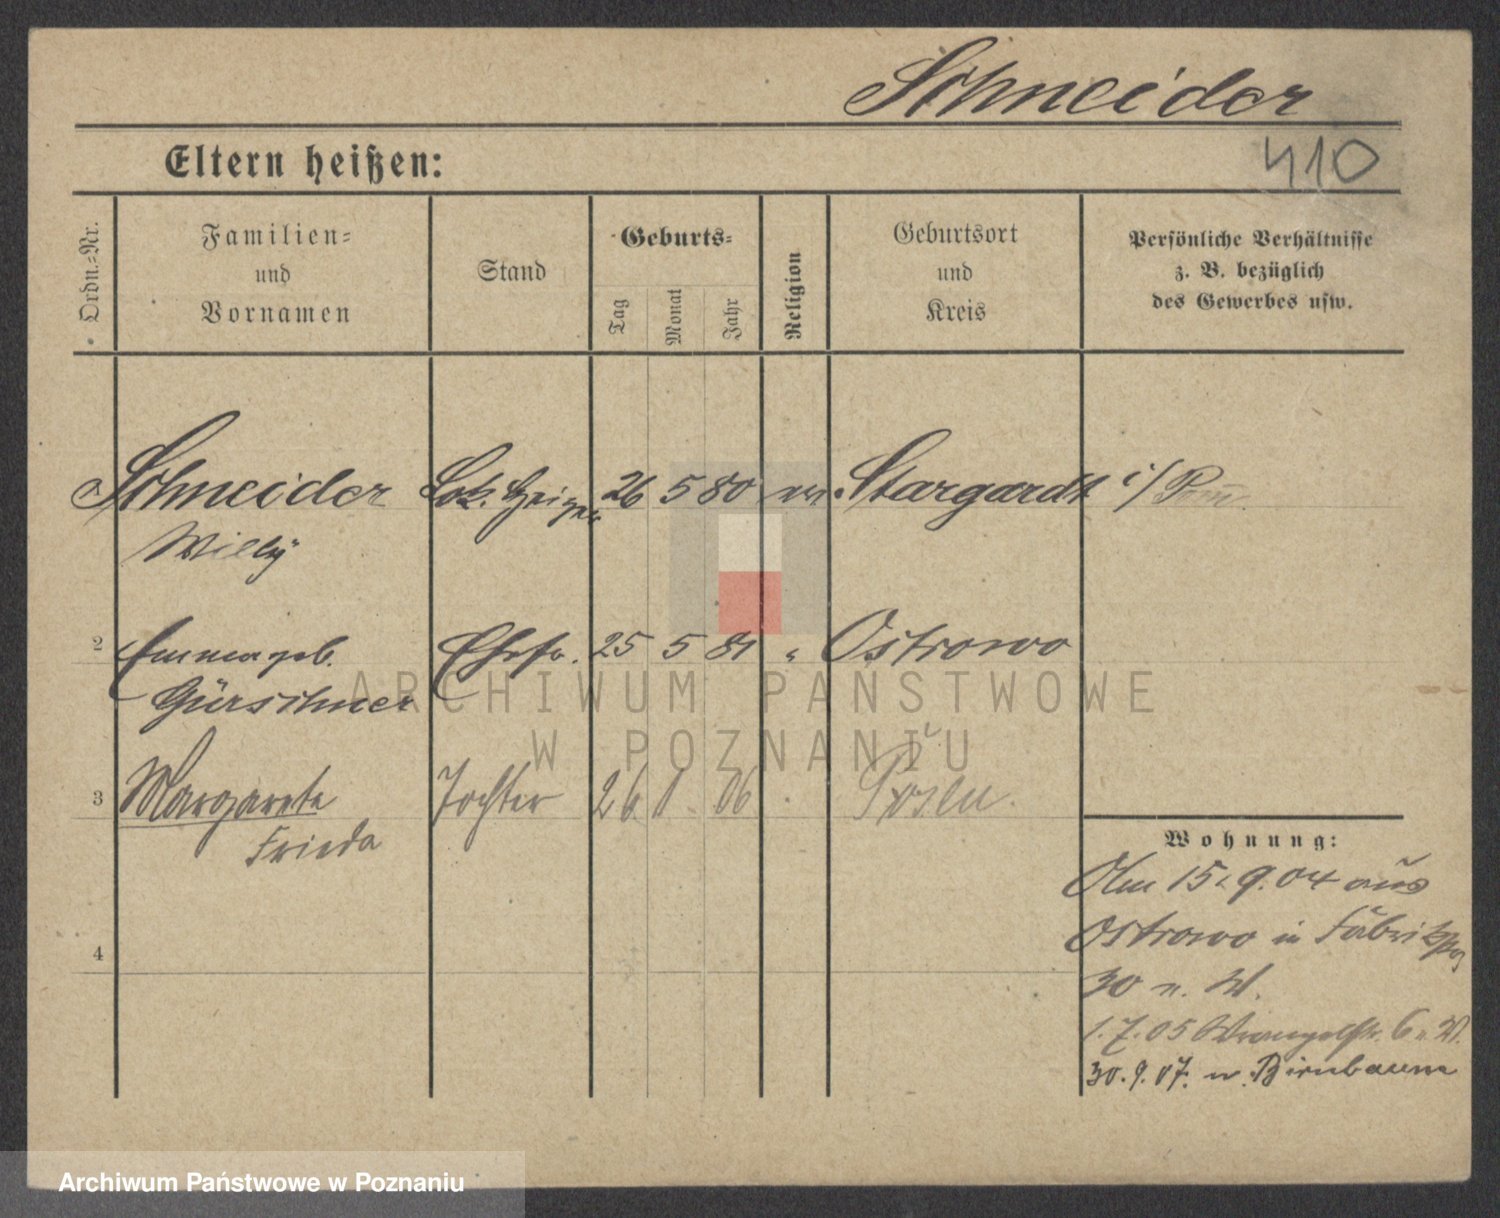 Schneider
410
Eltern heißen:
Ordn.-Nr.
Familien-
und
Vornamen
Stand
Geburts-
Tag
Monat
Jahr
Religion
Geburtsort
und
Kreis
Persönliche Verhältnisse
z. B. bezüglich
des Gewerbes usw.
Schneider Lok. Heizer 26 5 80 Stargardt i/Pom̅.
Willÿ
2 Emma geb. Ehefr. 25 5 81 " Ostrowo
Gürschner
3 Margarete Tochter 26 06 Posen.
Frieda
4
Wohnung:
Am 15.9.04 aus
Ostrowo in
30 n. W.
1.7.05 Wrangelstr. 6 n. W.
30.9.07. n. Birnbaum
ARCHIWUM PAŃSTWOWE
W POZNANIU
Archiwum Państwowe w Poznaniu